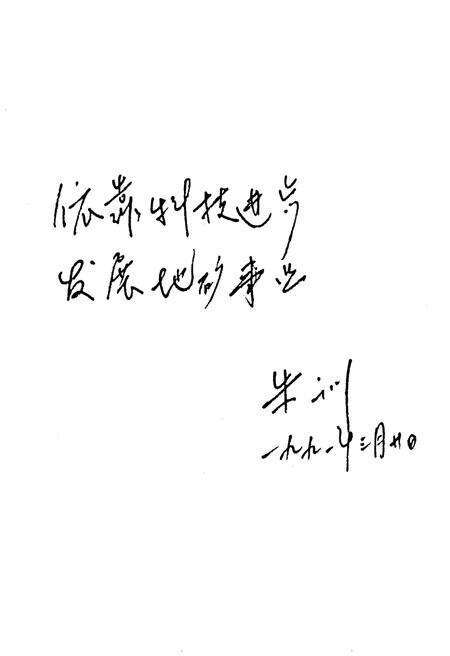 依靠科技进步
发展地矿事业
朱训
一九九一年三月廿日